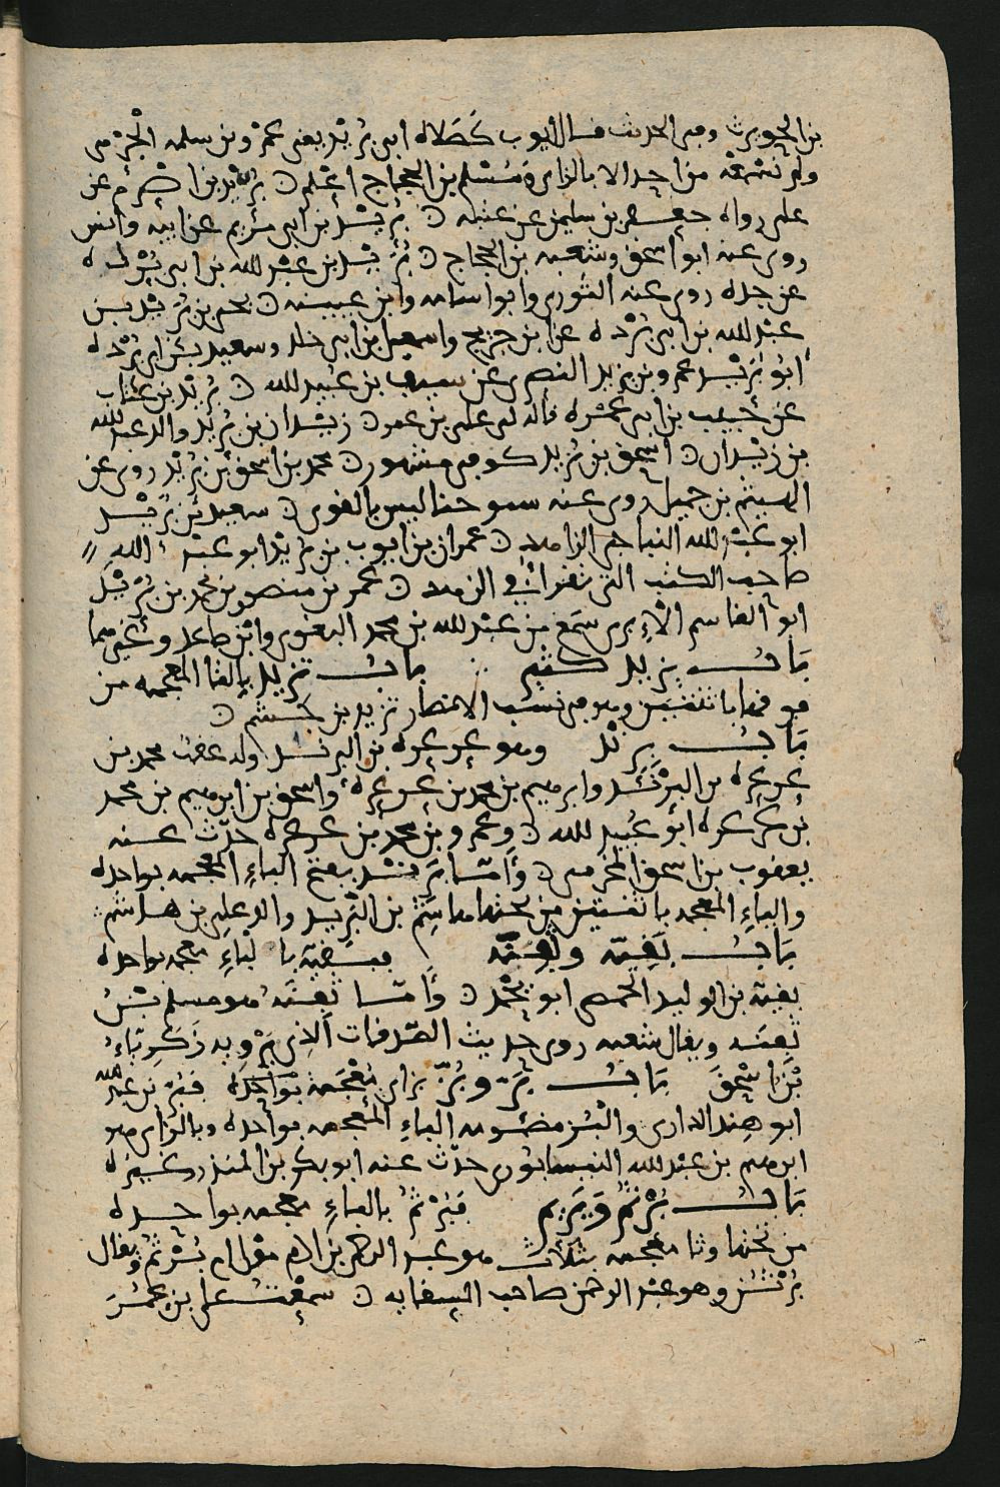 بن الحويرث وفي الحديث قال ايوب كصلاة ابي بريد يعني عمرو بن سلمه الجرمي
ولم نسمعه من احد الا بالزاي ومسلم بن الحجاج اعلم ○ بريد بن اصرم عن
علي رواه جعفر بن سليمن عن عتيبه ○ بريد بن ابي مريم عن ابيه وانس
روى عنه ابو اسحق وشعبه بن الحجاج ○ بريد بن عبد الله بن ابي برده
عن جده روى عنه الثوري وابو اسامه وابن عيينه ○ يحيى بن بريد بن
عبد الله بن ابي برده عن ابن جريج واسمعيل بن ابي خلد وسعيد بن ابي برده
ابو بريد عمرو بن يزيد البصري عن سيف بن عبيد الله ○ بريد بن
عن حبيب بن ابي عمره قاله لي علي بن عمر ○ زيدان بن بريد والد عبد الله
بن زيدان ○ اسحق بن بريد كوفي مشهور ○ محمد بن اسحق بن بريد روى عن
الهيثم بن جميل روى عنه ليس بالقوي ○ سعيد بن بريد
ابو عبد الله النباجي الزاهد ○ عمران بن ايوب بن بريد ابو عبد الله
صاحب الكتب التي في الزهد ○ عمر بن منصور بن محمد بن بريد
ابو القاسم سمع من عبد الله بن محمد البغوي وابن صاعد وغيرهما
باب يزيد كثير باب تزيد بالتا المعجمه من
فوقها باثنتين وهو في نسب الانصار تزيد بن جشم ○
باب برند وهو عرعره بن البرند ولد عقب محمد بن
عرعره بن البرند وابرهيم بن محمد بن عرعره واسحق بن ابرهيم بن محمد
بن عرعره ابو عبيد الله ○ وعمرو بن محمد بن عرعره حدث عنه
يعقوب بن اسحق المخرمي ○ واما بريد بفتح الباء المعجمه بواحده
والياء المعجمه باثنتين من تحتها هاشم بن البريد والد علي بن هاشم
باب بقيه فبقيه بالباء معجمه بواحده
بقيه بن الوليد الحمصي ابو يحمد ○ واما هو مسلم بن
ويقال شعبه روى حديث الصدقات الذي يرويه زكرياء
بن اسحق باب بر وبز بزاي معجمه بواحده فبر بن عبد الله
ابو هند الداري والبز مضمومه الباء المعجمه بواحده وبالزاي هو
ابرهيم بن عبد الله النيسابوري حدث عنه ابو بكر بن المنذر وغيره
باب برثم ويريم فبرثم بالباء معجمه بواحده
من تحتها وثا معجمه بثلاث هو عبد الرحمن بن ادم مولى ام برثم ويقال
برثن وهو عبد الرحمن صاحب السقايه ○ سمعت علي بن عمر